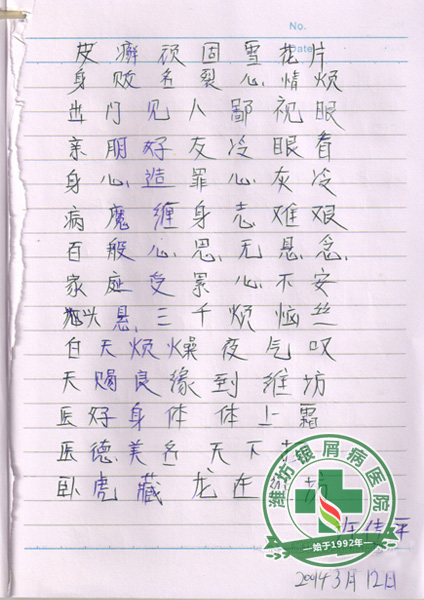 No.
Date
皮癣顽固雪花片
身败名裂心情烦
出门见人鄙视眼
亲朋好友冷眼看
身心造罪心灰冷
病魔缠身志难艰
百般心思无悬念
家庭受累心不安
头悬三千烦恼丝
白天烦燥夜气叹
天赐良缘到维坊
医好身体体上霜
医德美名天下
卧虎藏龙在坊
潍坊银屑病医院
—始于1992年—
2014 3月12日